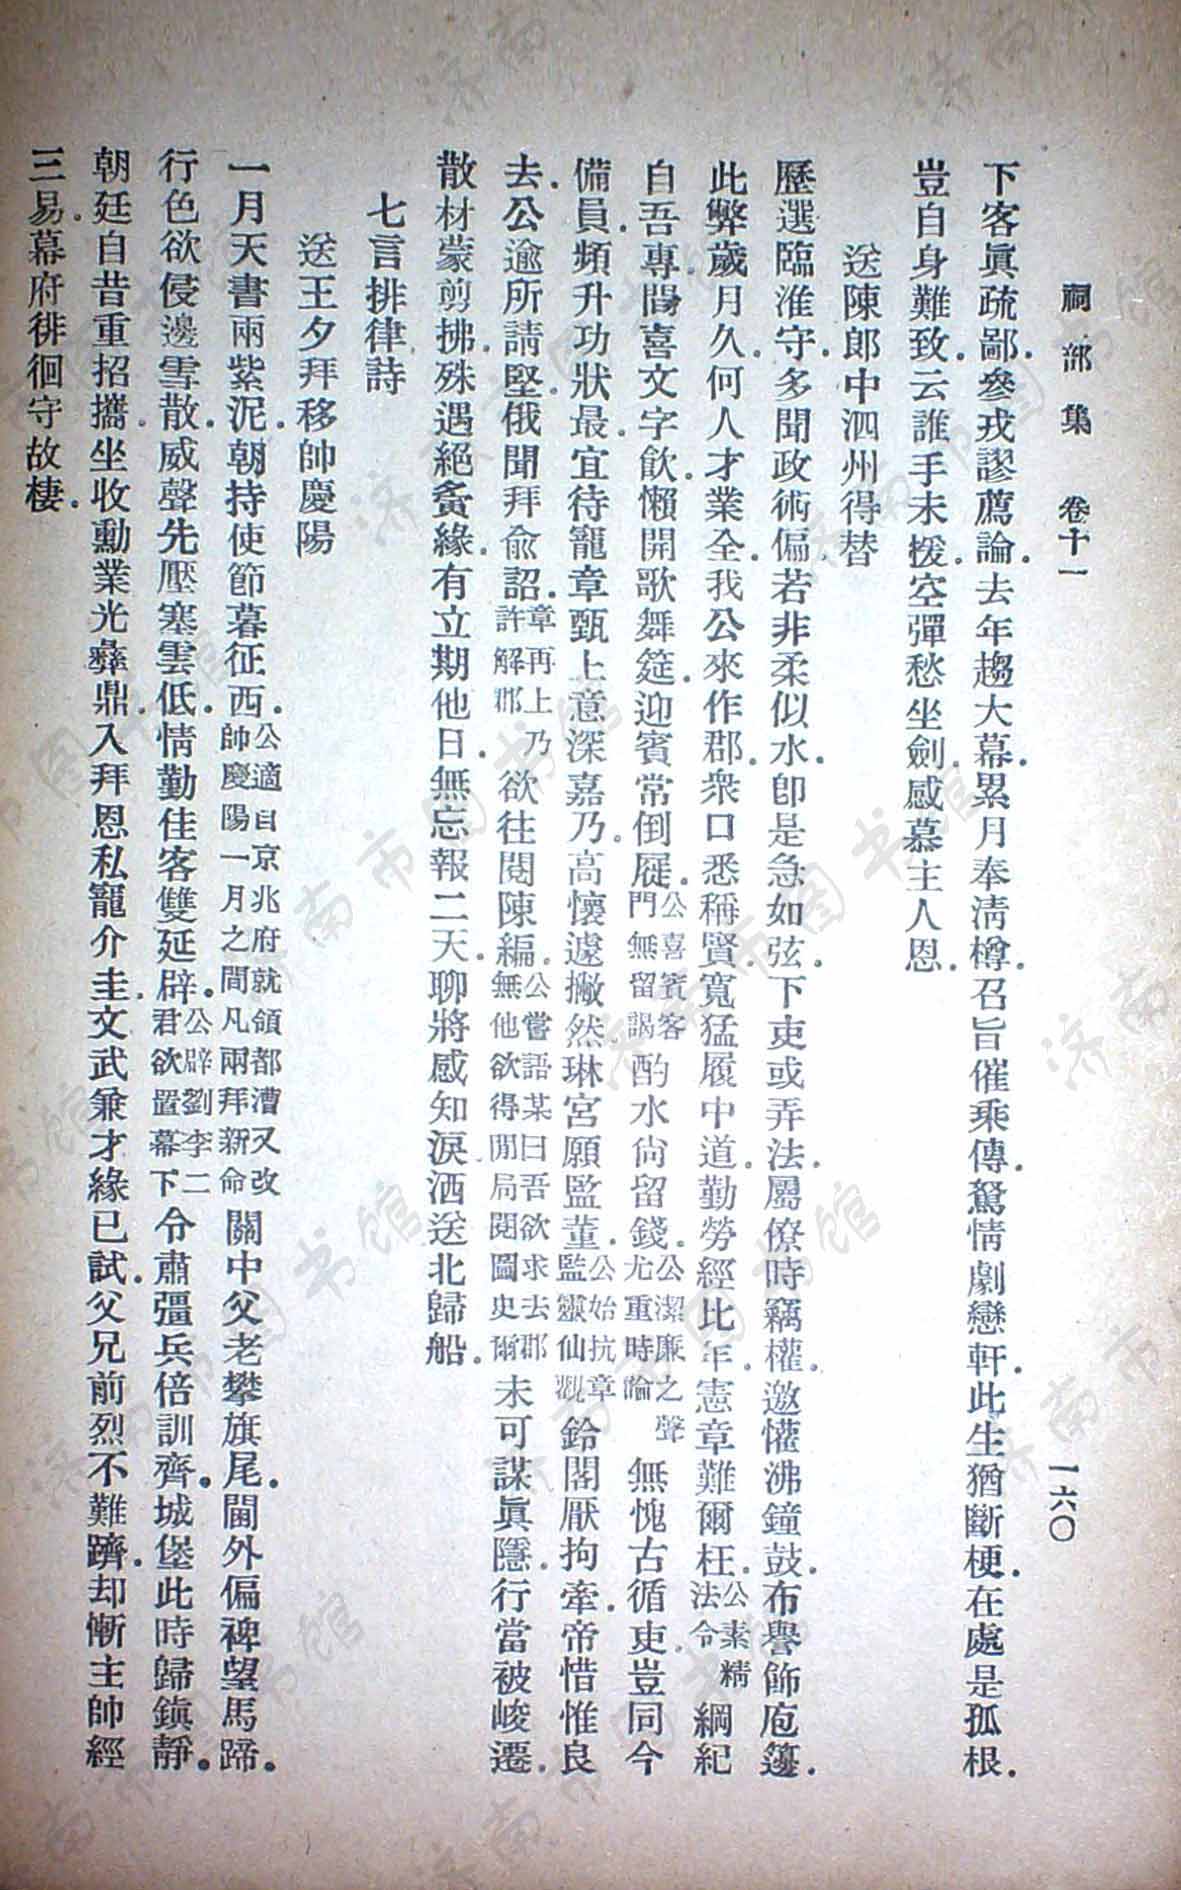 祠部集 卷十一 一六〇
下客眞疏鄙．參戎謬薦論．去年趨大幕．累月奉淸樽．召旨催乘傳．駑情劇戀軒．此生猶斷梗．在處是孤根．
豈自身難致．云誰手未援．空彈愁坐劍．感慕主人恩．
送陳郎中泗州得替
歷選臨淮守．多聞政術偏．若非柔似水．卽是急如弦．下吏或弄法．屬僚時竊權．邀懽沸鐘鼓．布譽飾庖籩．
此弊歲月久．何人才業全．我公來作郡．衆口悉稱賢．寬猛履中道．勤勞經比年．憲章難爾枉．公素精法令綱紀
自吾專．閱喜文字飮．懶開歌舞筵．迎賓常倒屣．公喜賓客門無留謁酌水尙留錢．公潔廉之聲尤重時論無愧古循吏．豈同今
備員．頻升功狀最．宜待寵章甄．上意深嘉乃．高懷遽撇然．琳宮願監董．公始抗章監靈仙觀鈴閣厭拘牽．帝惜惟良
去．公逾所請堅．俄聞拜兪詔．章再上乃許解郡欲往閱陳編．公嘗語某曰吾欲求去郡無他欲得閒局閱圖史爾未可謀眞隱．行當被峻遷．
散材蒙剪拂．殊遇絕夤緣．有立期他日．無忘報二天．聊將感知淚．洒送北歸船．
七言排律詩
送王夕拜移帥慶陽
一月天書兩紫泥．朝持使節暮征西．公適自京兆府就領都漕又改帥慶陽一月之間凡兩拜新命關中父老攀旗尾．閫外偏裨望馬蹄．
行色欲侵邊雪散．威聲先壓塞雲低．情勤佳客雙延辟．公辟劉李二君欲置幕下令肅彊兵倍訓齊．城堡此時歸鎭靜．
朝廷自昔重招攜．坐收勳業光彝鼎．入拜恩私寵介圭．文武兼才緣已試．父兄前烈不難躋．却慚主帥經
三易．幕府徘徊守故棲．